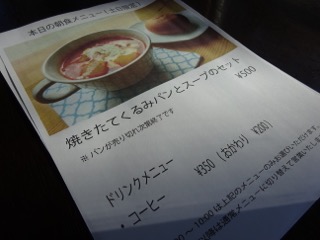 本日の朝食メニュー（土日限定）
焼きたてくるみパンとスープのセット
¥500
※ パンが売り切れ次第終了です
ドリンクメニュー
・コーヒー ¥350（おかわり ¥200）
10:00 は上記のメニューのみお選びいただけます
は通常メニューに切り替えて営業いたし